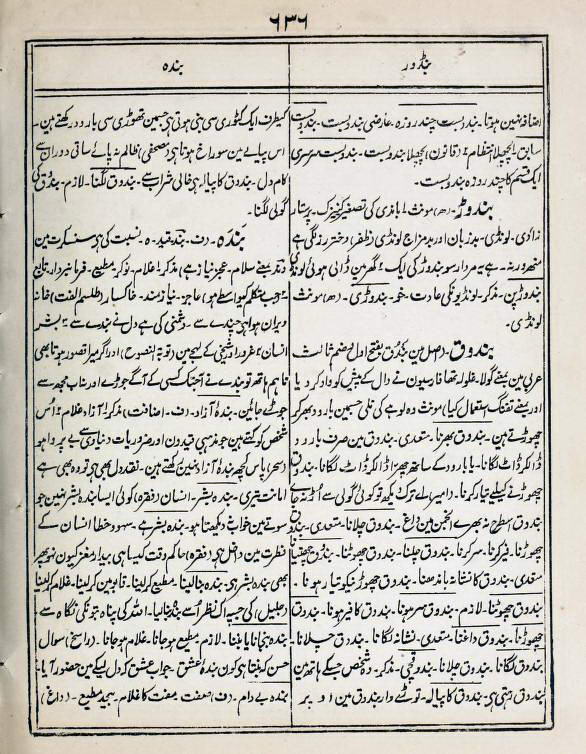 ۶۳۶
بنڈور
بندہ
اضافہ نہین ہوتا۔ بندوبست چند روزہ۔ عارضی بندوبست۔ بندوبست
سابق۔ پچھلا انتظام۔ (قانون) پچھلا بندوبست۔ بندوبست سرسری
ایک قسم کا چند روزہ بندوبست۔
بندوڑ۔ (ھ) مونث۔ باندی کی تصغیر۔ کنیزک۔ پرستار
زادی۔ لونڈی۔ بدزبان اور بدمزاج لونڈی (ظفر) دختر رز نگی ہے
مقہور نہ۔ ہے یہ مردار سو بندوڑ کی ایک۔ گھر مین ڈالی ہوئی لونڈی
بندوڑپن۔ مذکر۔ لونڈیونکی عادت۔ خو۔ بندوڑی۔ (ھ) مونث
لونڈی۔
بندوق۔ (اصل مین بُندُق بفتح اول و ضم ثالث
عربی مین بمعنے گولا۔ غلولہ تھا فارسیون نے دال کے پیش کو واو کر دیا
اور بمعنے تفنگ استعمال کیا) مونث۔ وہ لوہے کی نلی جسمین بارود بھر کر
چھوڑتے ہین۔ بندوق بھرنا۔ متعدی۔ بندوق مین صرف بارود
ڈالکر ڈاٹ لگانا۔ یا بارود کے ساتھ چھرّا ڈالکر ڈاٹ لگانا۔ بندوق
چھوڑنے کیلیے تیار کرنا۔ (امیر) اے ترک دیکھ تو کوئی گولی سے اُڑ نہ جاے
بندوق اسطرح نہ بھرے انجمن مین داغ۔ بندوق چلانا۔ متعدی۔ بندوق
چھوڑنا۔ فیر کرنا۔ سر کرنا۔ بندوق چلنا۔ بندوق چھوٹنا۔ بندوق چھتیانا
متعدی۔ بندوق کا نشانہ باندھنا۔ بندوق چھوڑنیکو تیار ہونا۔
بندوق چھوٹنا۔ لازم۔ بندوق سر ہونا۔ بندوق کا فیر ہونا۔ بندوق
چھوڑنا۔ بندوق داغنا۔ متعدی۔ نشانہ لگانا۔ بندوق چلانا۔
بندوق لگانا۔ بندوق چلانا۔ بندوقچی۔ مذکر۔ وہ شخص جسکے ہاتھ مین
بندوق رہتی ہے۔ بندوق کا پیالہ۔ توڑے دار بندوق مین اوپر
کیطرف ایک کٹوری سی بنی ہوتی ہے جسمین تھوڑی سی بارود رکھتے ہین۔
اس پیالے مین سوراخ ہوتا ہے (مصحفی) ظالم نہ پائے ساقی دوران سے
کام دل۔ بندوق کا پیالہ ہے خالی شراب سے۔ بندوق لگنا۔ لازم۔ بندوق کی
گولی لگنا۔
بَندَہ۔ (ف۔ بند=قید۔ ہ۔ نسبت کی ہے سنسکرت مین
وندر بمعنے سلام۔ عجز نیاز ہے) مذکر۔ غلام۔ نوکر۔ مطیع۔ فرمانبردار۔ تابع
جب متکلم کیواسطے ہو) عاجز۔ نیازمند۔ خاکسار (طلسم الفت) خانہ
ویران ہوا ہے چندے سے۔ دشمنی کی ہے دل نے بندے سے۔ بشر
انسان۔ غرور اور شیخی کے لہجے مین (توبۃ النصوح) اور اگر میرا تصور ہوتا بھی
تاہم ہاتھ تو بندے نے آجتک کسی کے آگے جوڑے اور نہ اب مجھ سے
جوڑے جائین۔ بندۂ آزاد۔ (ف۔ اضافت) مذکر۔ آزاد غلام۔ اُس
شخص کو کہتے ہین جو مذہبی قیدون اور ضروریات دنیاوی سے بے پروا ہو
(سحر) پاس کچھ بندۂ آزاد نہین رکھتے ہین۔ نقد دل بھی ہے تو وہ بھی ہے
امانت تیری۔ بندہ بشر۔ انسان۔ (فقرہ) کوئی ایسا بندہ بشر نہین جو
سوتے مین خواب نہ دیکھتا ہو۔ بندہ بشر ہے۔ سہو و خطا انسان کے
فطرت مین داخل ہے (فقرہ) حاکم وقت کیسا ہی بیدار مغز کیون نہو پھر
بھی بندہ بشر ہے۔ بندہ بنا لینا۔ مطیع کر لینا۔ قابو مین کر لینا۔ غلام کر لینا
(جلیل) کی جسپہ اک نظر اُسے بندہ بنا لیا۔ اللہ کی پناہ جو تکی نگاہ سے
بندہ بن جانا یا بننا۔ لازم۔ مطیع ہو جانا۔ غلام ہو جانا۔ (راسخ) سوال
حسن کہ بنتا ہے کون بندۂ عشق۔ جواب عشق کہ دل لیکے مین حضور آیا۔
بندہ بے دام۔ (ف) صفت۔ مفت کا غلام۔ بیحد مطیع۔ (داغ)